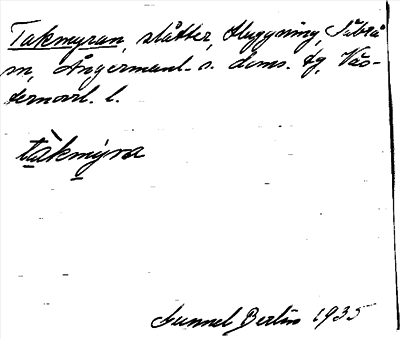 Takmyran, slåtter, Huggning, Säbrå
sn, Ångermanl. s. doms. fg, Väs-
ternorrl. l.
tàkmýra
Gunnel Berlin 1935